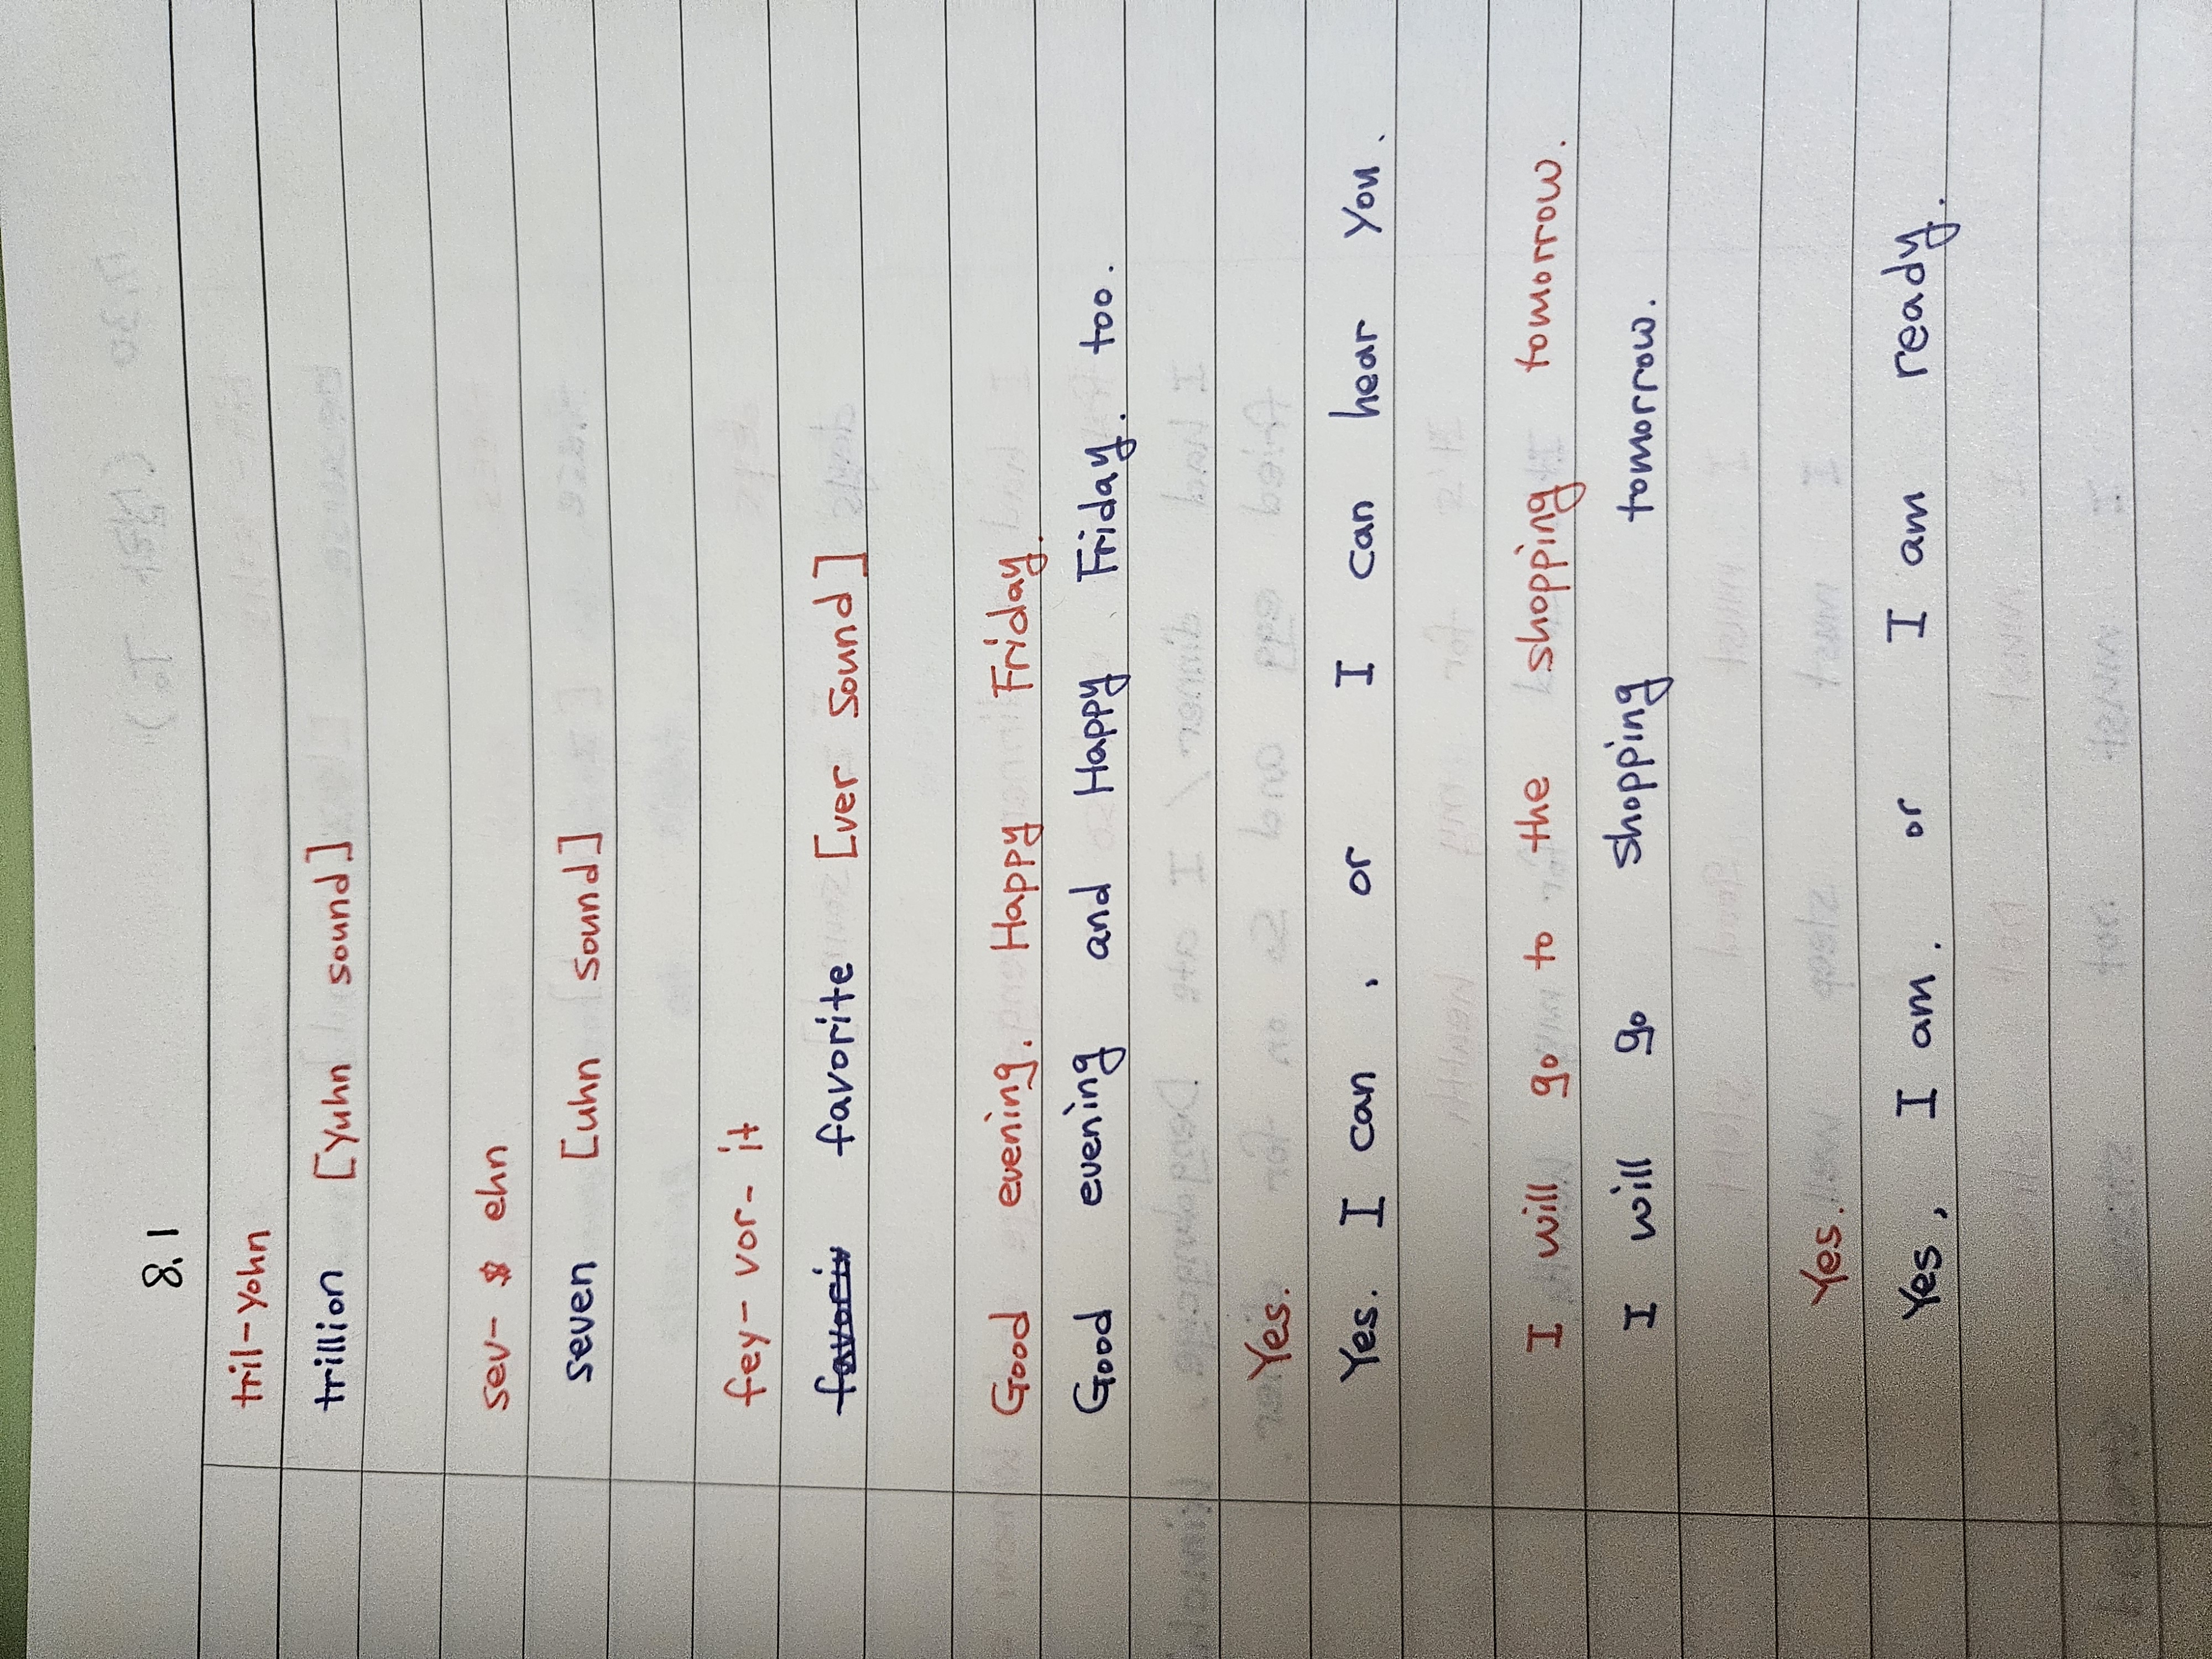 8.1
tril-yohn
trillion [Yuhn sound]
sev- ehn
seven [uhn sound]
fey-vor-it
favorite [ver sound]
Good evening. Happy Friday.
Good evening and Happy Friday. too.
Yes.
Yes. I can, or I can hear you.
I will go to the shopping tomorrow.
I will go shopping tomorrow.
Yes.
Yes, I am. or I am ready.